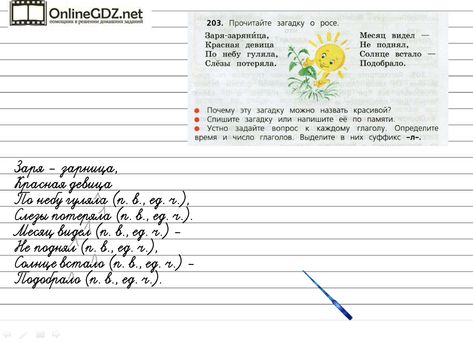 OnlineGDZ.net
помощник в решении домашних заданий
203. Прочитайте загадку о росе.
Заря-заряни́ца,
Красная девица
По небу гуляла,
Слёзы потеряла.
Месяц видел —
Не поднял,
Солнце встало —
Подобрало.
● Почему эту загадку можно назвать красивой?
● Спишите загадку или напишите её по памяти.
● Устно задайте вопрос к каждому глаголу. Определите
время и число глаголов. Выделите в них суффикс -л-.
Заря – зарница,
Красная девица
По небу гуляла (п. в., ед. ч.),
Слезы потеряла (п. в., ед. ч.).
Месяц видел (п. в., ед. ч.) –
Не поднял (п. в., ед. ч.),
Солнце встало (п. в., ед. ч.) –
Подобрало (п. в., ед. ч.).